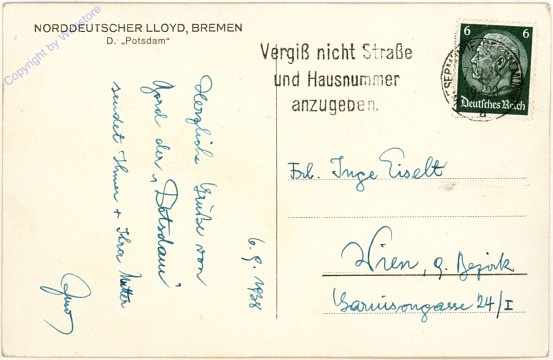 NORDDEUTSCHER LLOYD, BREMEN
D. „Potsdam"
Copyright by
Vergiß nicht Straße
und Hausnummer
anzugeben.
6 6
Deutsches Reich
6. 9. 1938
Herzliche Grüße von
Bord der „Potsdam"
sendet Ihnen + Ihrer Mutter
Frl. Inge Eiselt
Wien, 9. Bezirk
Garnisongasse 24/I